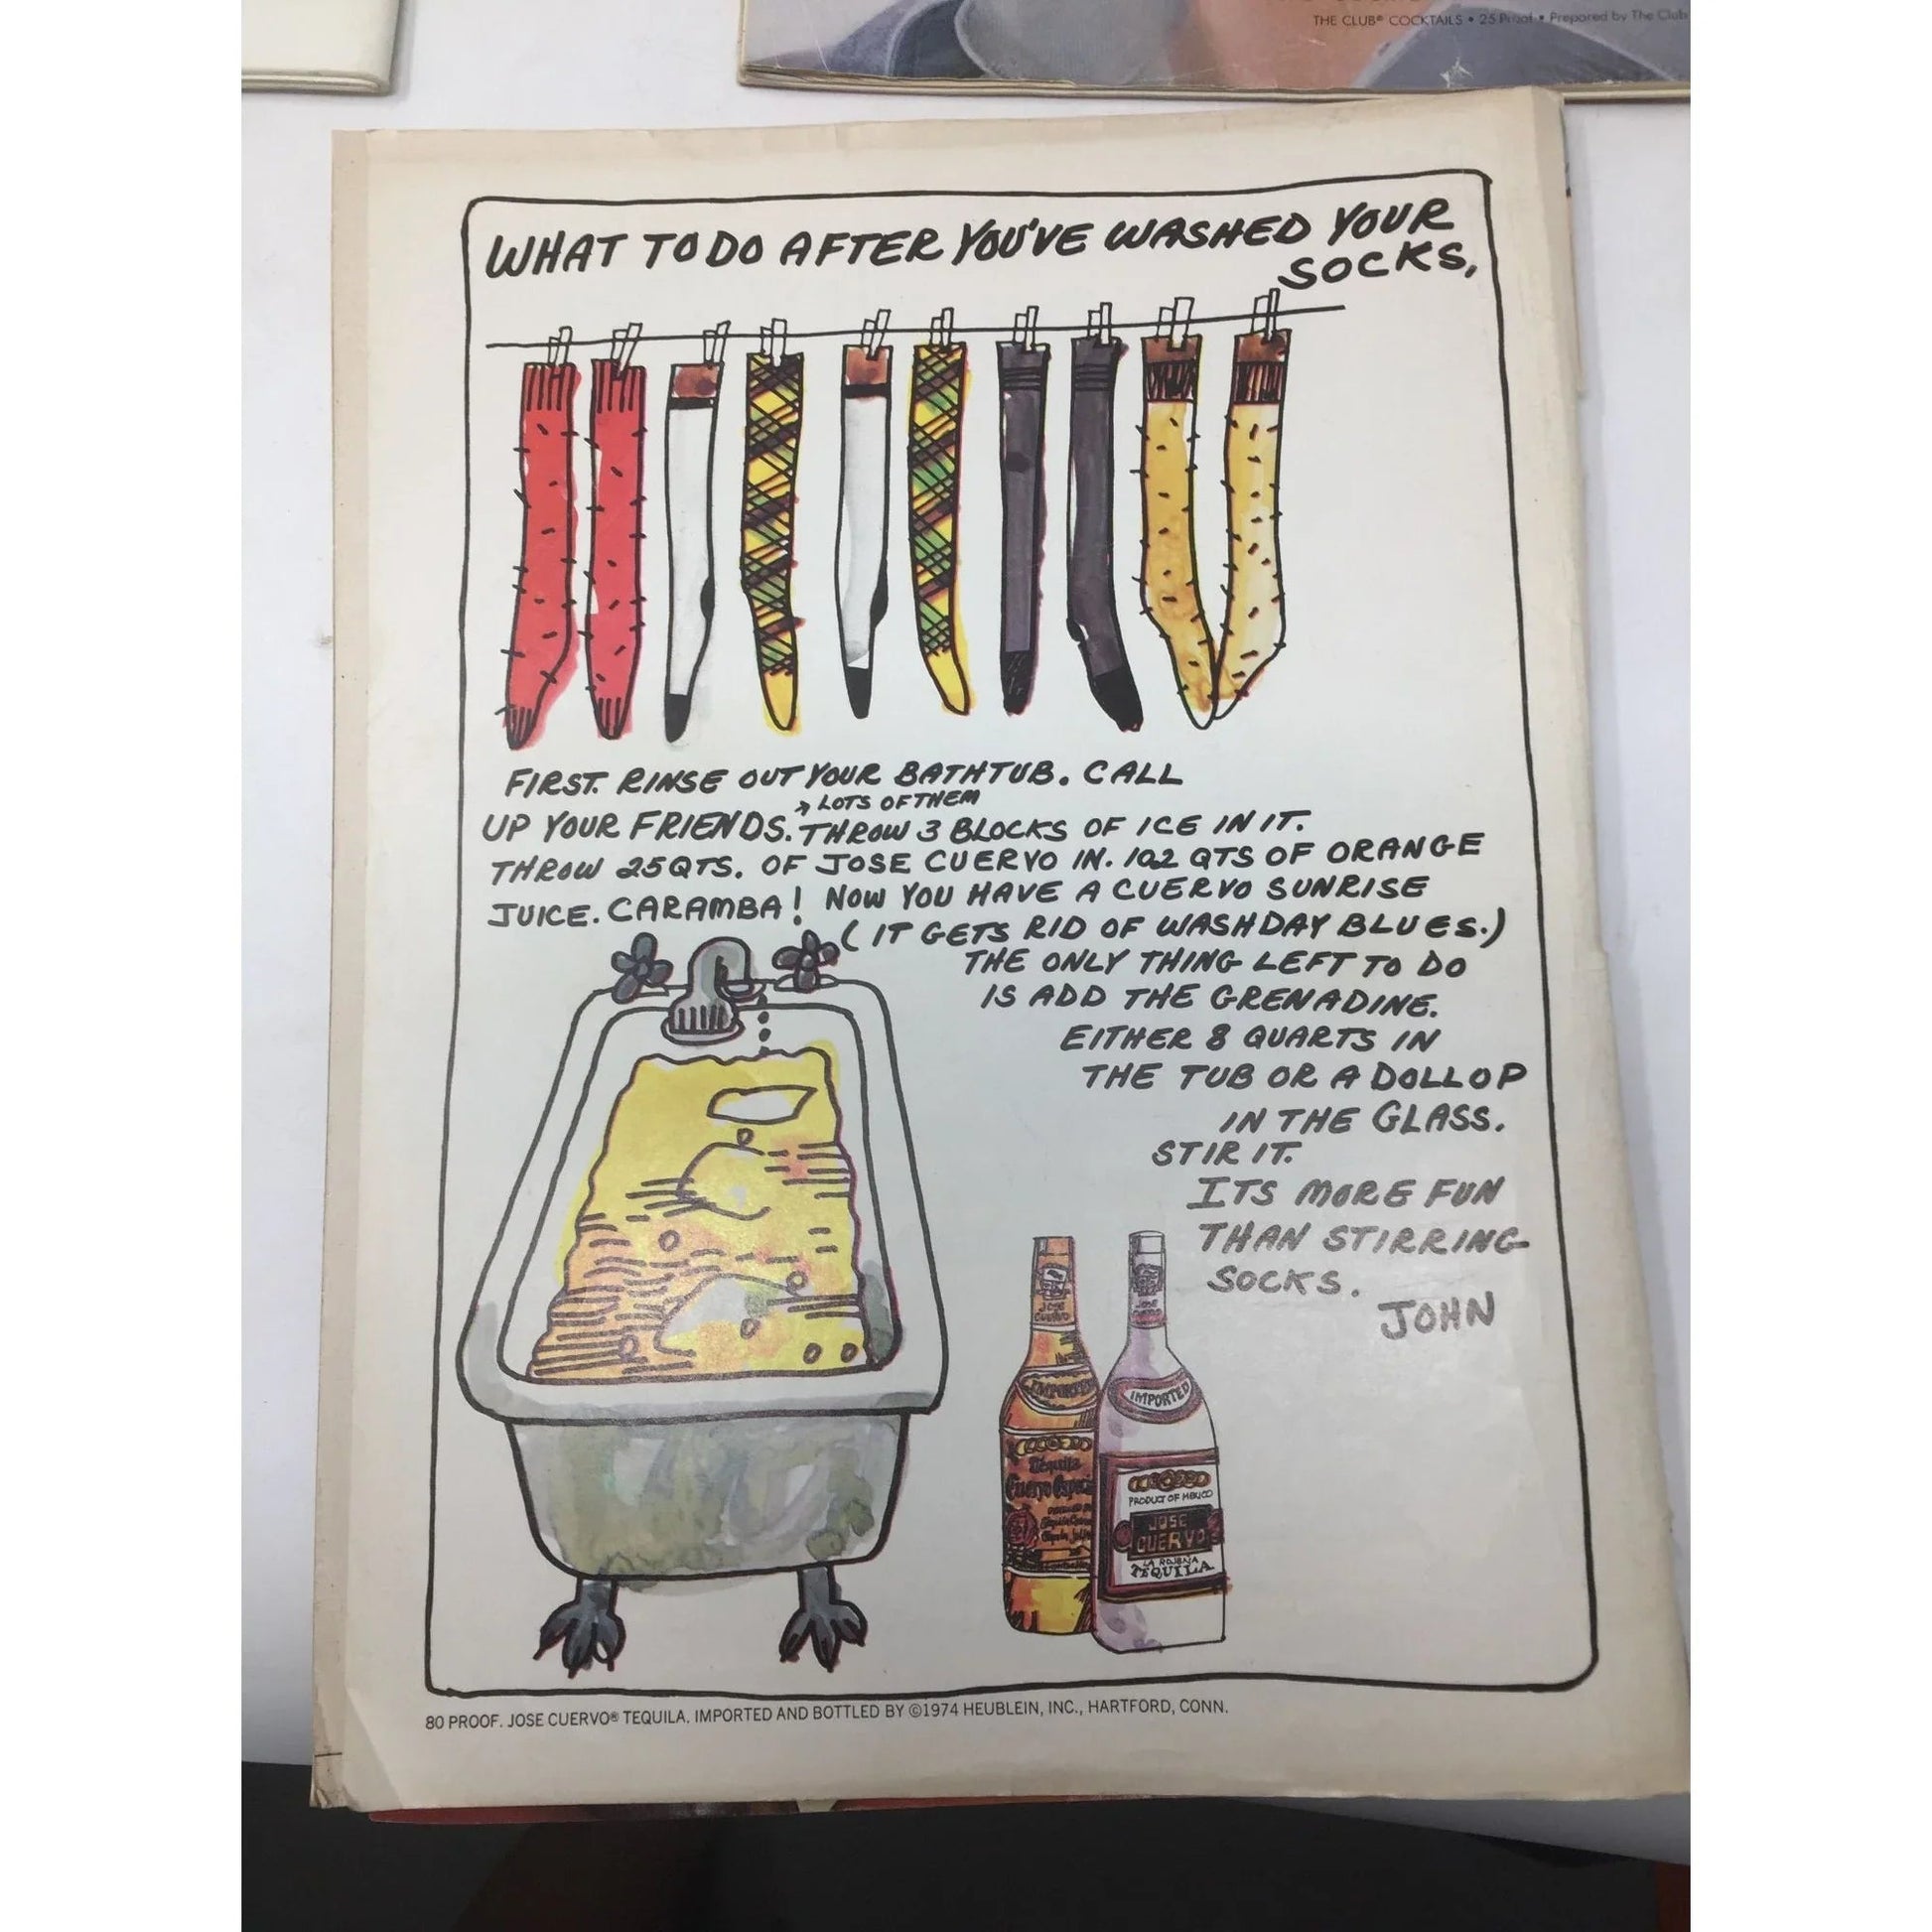 THE CLUB® COCKTAILS • 25 Proof • Prepared by The Club
WHAT TO DO AFTER YOU'VE WASHED YOUR
SOCKS,
FIRST. RINSE OUT YOUR BATHTUB. CALL
LOTS OF THEM
UP YOUR FRIENDS. THROW 3 BLOCKS OF ICE IN IT.
THROW 25 QTS. OF JOSE CUERVO IN. 102 QTS OF ORANGE
JUICE. CARAMBA! NOW YOU HAVE A CUERVO SUNRISE
(IT GETS RID OF WASHDAY BLUES.)
THE ONLY THING LEFT TO DO
IS ADD THE GRENADINE.
EITHER 8 QUARTS IN
THE TUB OR A DOLLOP
IN THE GLASS.
STIR IT.
ITS MORE FUN
THAN STIRRING
SOCKS.
JOHN
JOSE
CUERVO
IMPORTED
Tequila
Cuervo Especial
IMPORTED
PRODUCT OF MEXICO
JOSE
CUERVO
LA ROJENA
TEQUILA
80 PROOF. JOSE CUERVO® TEQUILA. IMPORTED AND BOTTLED BY ©1974 HEUBLEIN, INC., HARTFORD, CONN.